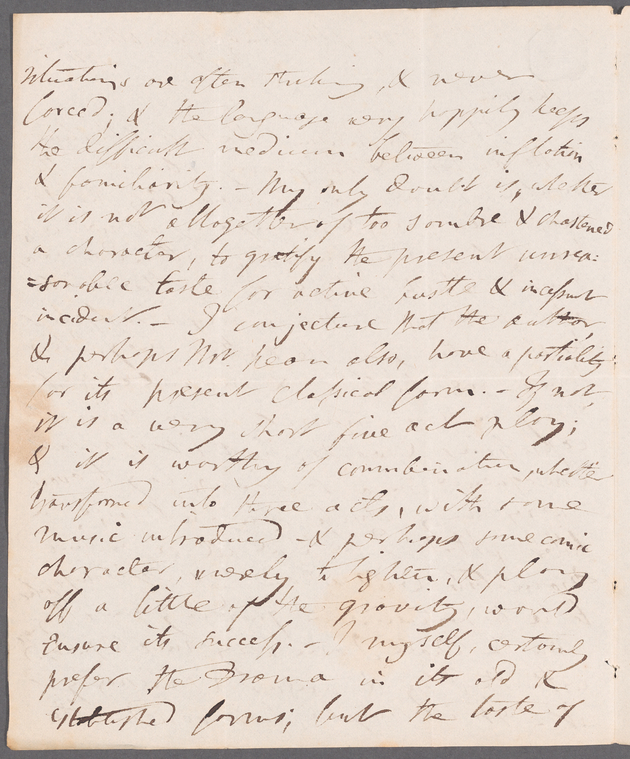 situations are often striking, & never
forced; & the language very happily keeps
the difficult medium between inflation
& familiarity. - My only doubt is, whether
it is not altogether of too sombre & chastened
a character, to gratify the present unrea:
=sonable taste for active bustle & incessant
incident. - I conjecture that the author
& perhaps Mr. Kean also, have a partiality
for its present classical form. - If not,
it is a very short five act play;
& it is worthy of consideration, whether
transformed into three acts, with some
music introduced - & perhaps some comic
character, merely to lighten, & play
off a little of the gravity, would
ensure its success. - I myself, certainly
prefer the Drama in its old &
established forms; but the taste of